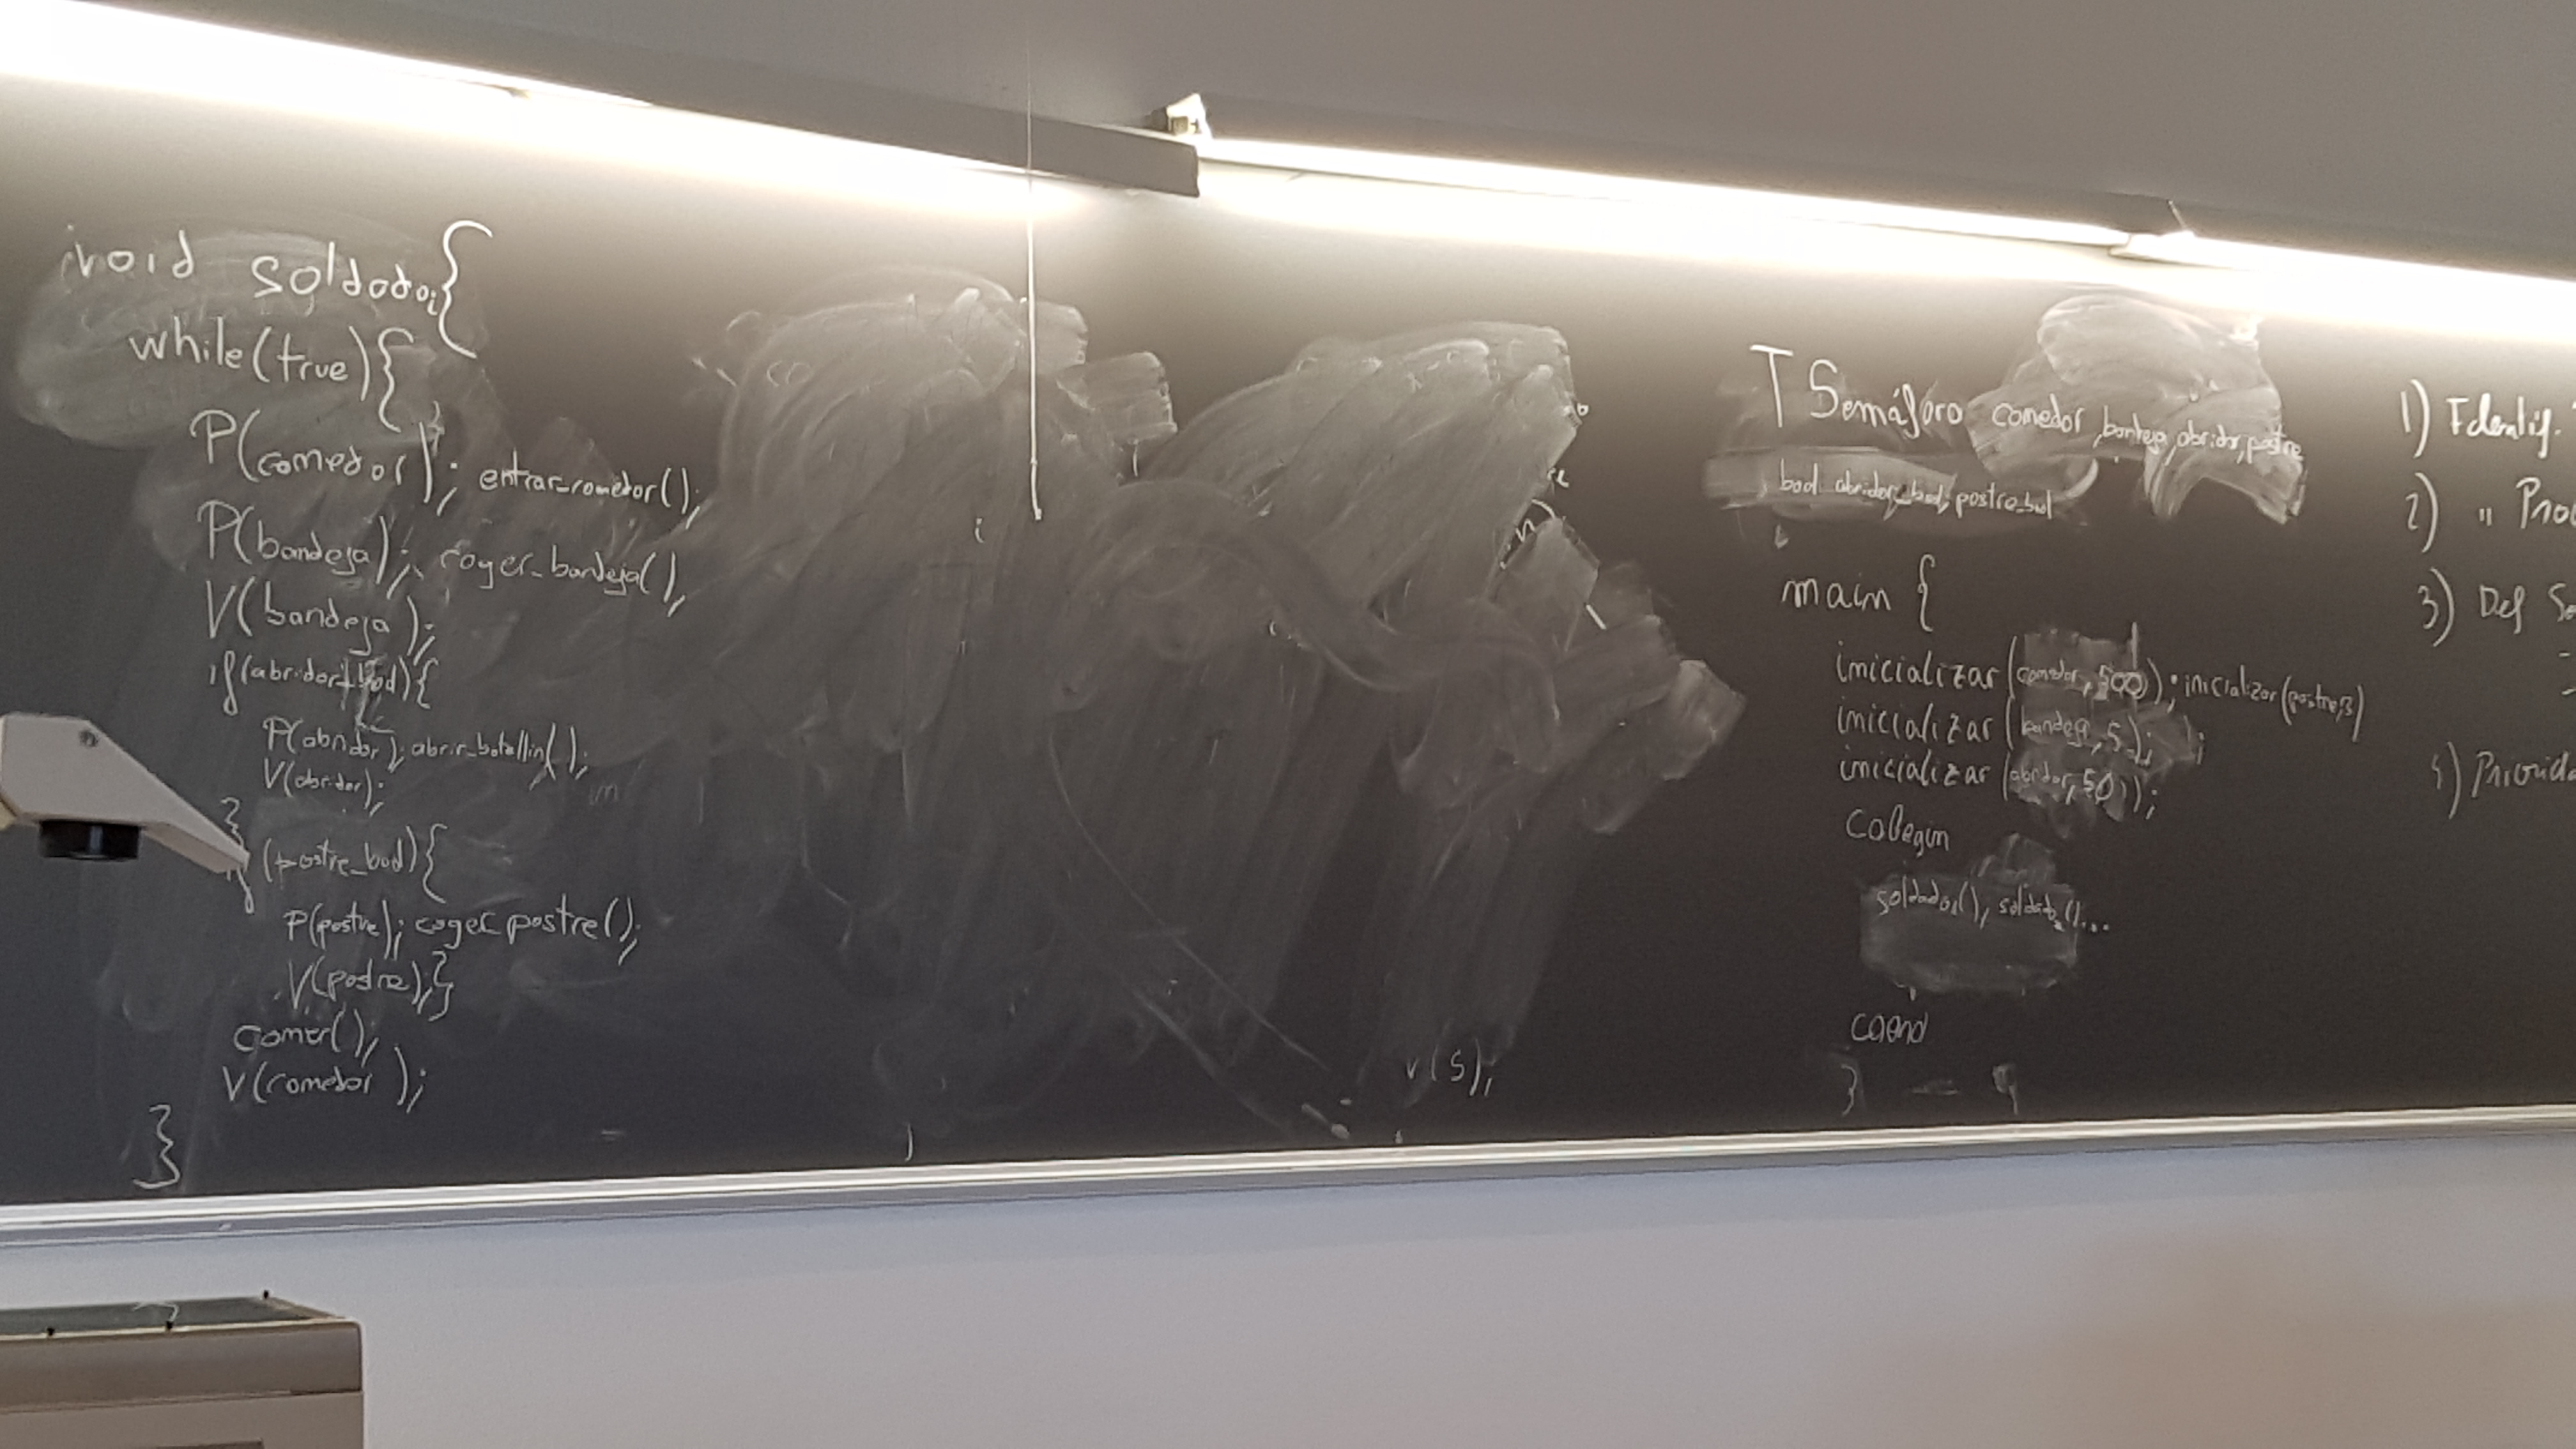 void soldadoi{
while(true){
P(comedor); entrar_comedor();
P(bandeja); coger_bandeja();
V(bandeja);
if(abridor_bool){
P(abridor); abrir_botellin();
V(abridor);
}
if (postre_bool){
P(postre); coger_postre();
V(postre);}
comer();
V(comedor);
}
V(S);
TSemáforo comedor, bandeja, abridor, postre
bool abridor_bool, postre_bool
main {
inicializar (comedor, 500); inicializar(postre,3)
inicializar (bandeja, 5);
inicializar (abridor, 50);
cobegin
soldado1(), soldado2()...
coend
}
1) Identif.
2) "
3) Def
4)